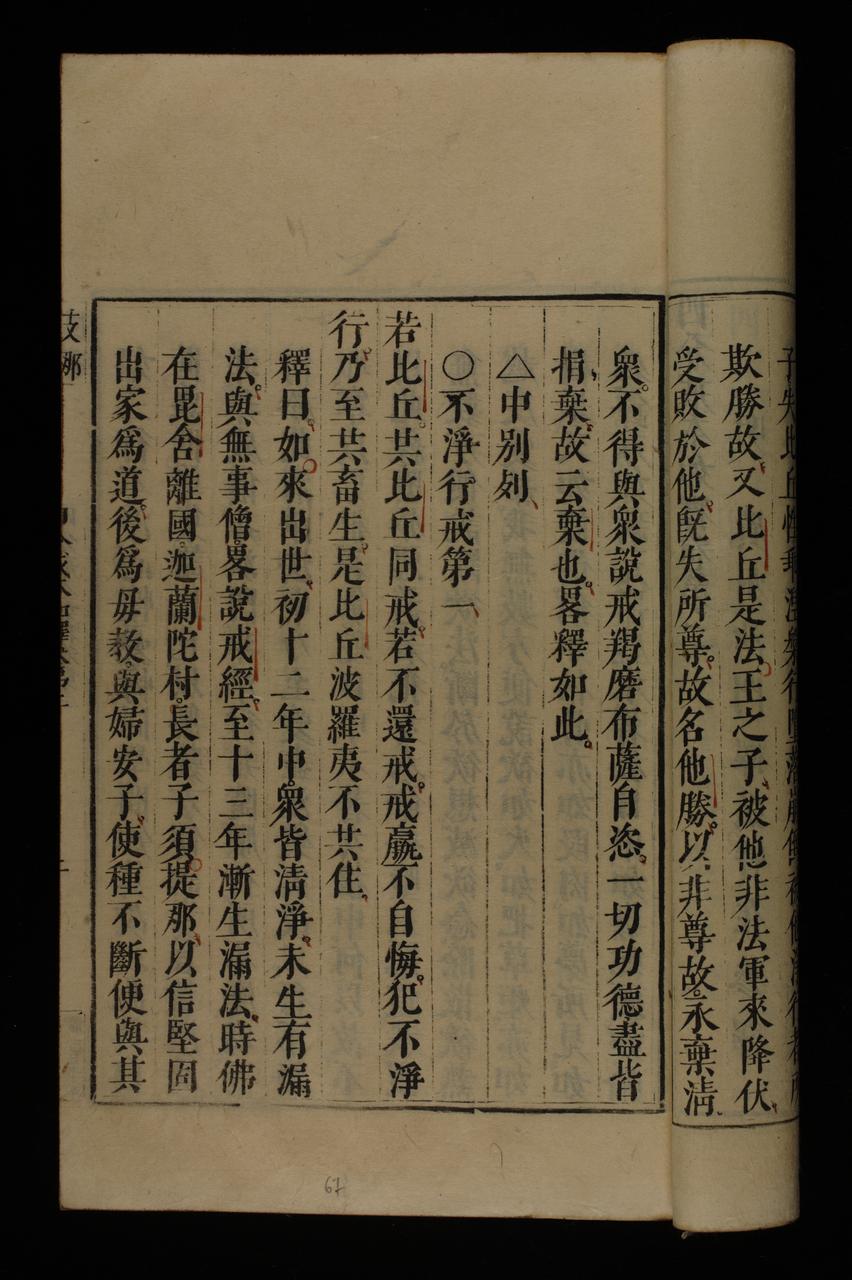 欺勝故又比丘是法王之子被他非法軍來降伏
受敗於他旣失所尊故名他勝以非尊故永棄淸
衆不得與衆說戒羯磨布薩自恣一切功德盡皆
捐棄故云棄也畧釋如此
△中別列
○不淨行戒第一
若比丘共比丘同戒若不還戒戒羸不自悔犯不淨
行乃至共畜生是比丘波羅夷不共住
釋曰如來出世初十二年中衆皆淸淨未生有漏
法與無事僧畧說戒經至十三年漸生漏法時佛
在毘舍離國迦蘭陀村長者子須提那以信堅固
出家爲道後爲母敎與婦安子使種不斷便與其
67